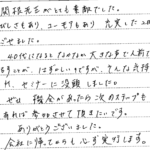 関根先生がとても素敵でした。
びしさもあり、ユーモアもあり、充実した2日
ごせました。
40代になるとなかなか大きな声で人前に
ますが、はずかしいですが、そんな気持
れ、セミナーに没頭しました。
ぜひ機会があったら次のステップも
あれば参加させて頂きたいです。
ありがとうございました。
会社に帰ってからも必ず実行します。